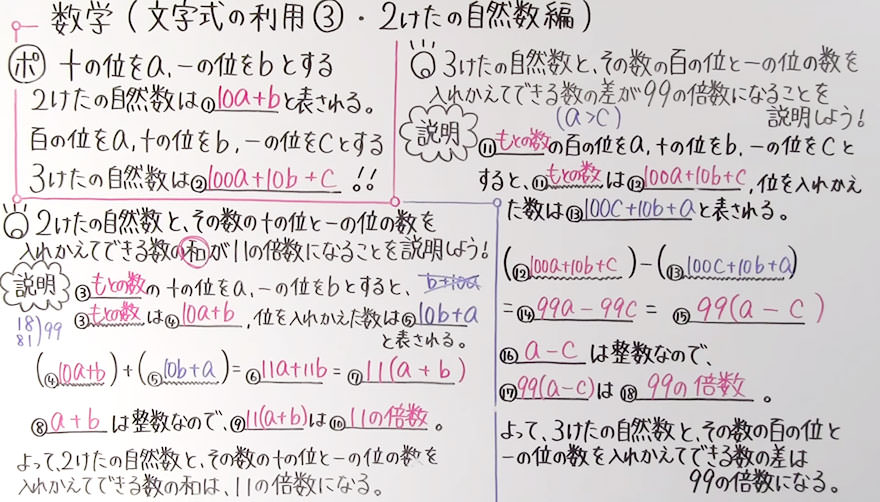 数学(文字式の利用③・2けたの自然数編)
ポ 十の位をa,一の位をbとする
2けたの自然数は①10a+bと表される。
百の位をa,十の位をb,一の位をCとする
3けたの自然数は②100a+10b+C!!
2けたの自然数と、その数の十の位と一の位の数を
入れかえてできる数の和が11の倍数になることを説明しよう!
説明
③もとの数の十の位をa,一の位をbとすると、
b+10a
③もとの数は④10a+b,位を入れかえた数は⑤10b+a
と表される。
18
81)99
(④10a+b)+(⑤10b+a)=⑥11a+11b=⑦11(a+b)
⑧a+bは整数なので、⑨11(a+b)は⑩11の倍数。
よって、2けたの自然数と、その数の十の位と一の位の数を
入れかえてできる数の和は、11の倍数になる。
3けたの自然数と、その数の百の位と一の位の数を
入れかえてできる数の差が99の倍数になることを
(a>c) 説明しよう!
説明
⑪もとの数の百の位をa,十の位をb,一の位をCと
すると、⑪もとの数は⑫100a+10b+C,位を入れかえ
た数は⑬100C+10b+aと表される。
(⑫100a+10b+C)-(⑬100C+10b+a)
=⑭99a-99C=⑮99(a-C)
⑯a-Cは整数なので、
⑰99(a-C)は⑱99の倍数。
よって、3けたの自然数と、その数の百の位と
一の位の数を入れかえてできる数の差は
99の倍数になる。